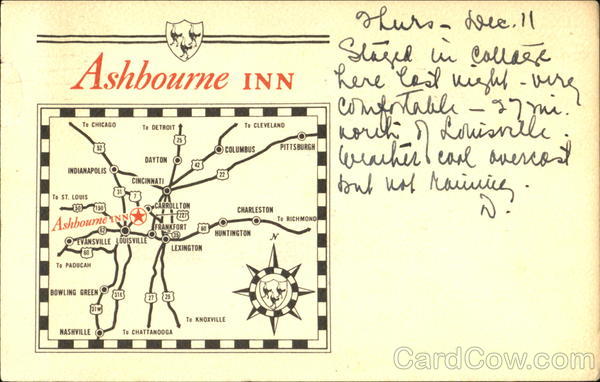 Ashbourne INN
Thurs - Dec. 11
Stayed in cottage
here last night - very
comfortable - 27 mi.
north of Louisville.
Weather cool overcast
but not raining.
D.
To CHICAGO
To DETROIT
To CLEVELAND
PITTSBURGH
52
25
COLUMBUS
42
DAYTON
22
INDIANAPOLIS
CINCINNATI
31
7
To ST. LOUIS
50
150
CARROLLTON
227
Ashbourne INN
CHARLESTON
To RICHMOND
60
FRANKFORT
HUNTINGTON
62
EVANSVILLE
LOUISVILLE
LEXINGTON
60
N
To PADUCAH
BOWLING GREEN
31E
31W
27
25
To KNOXVILLE
NASHVILLE
To CHATTANOOGA
CardCow.com